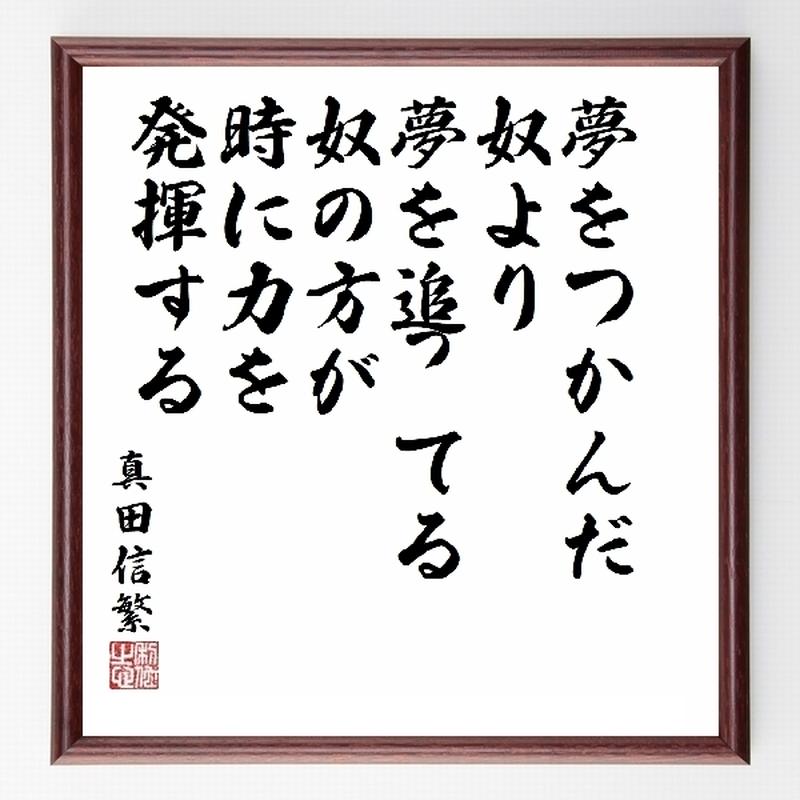 夢をつかんだ
奴より
夢を追ってる
奴の方が
時に力を
発揮する
真田信繁